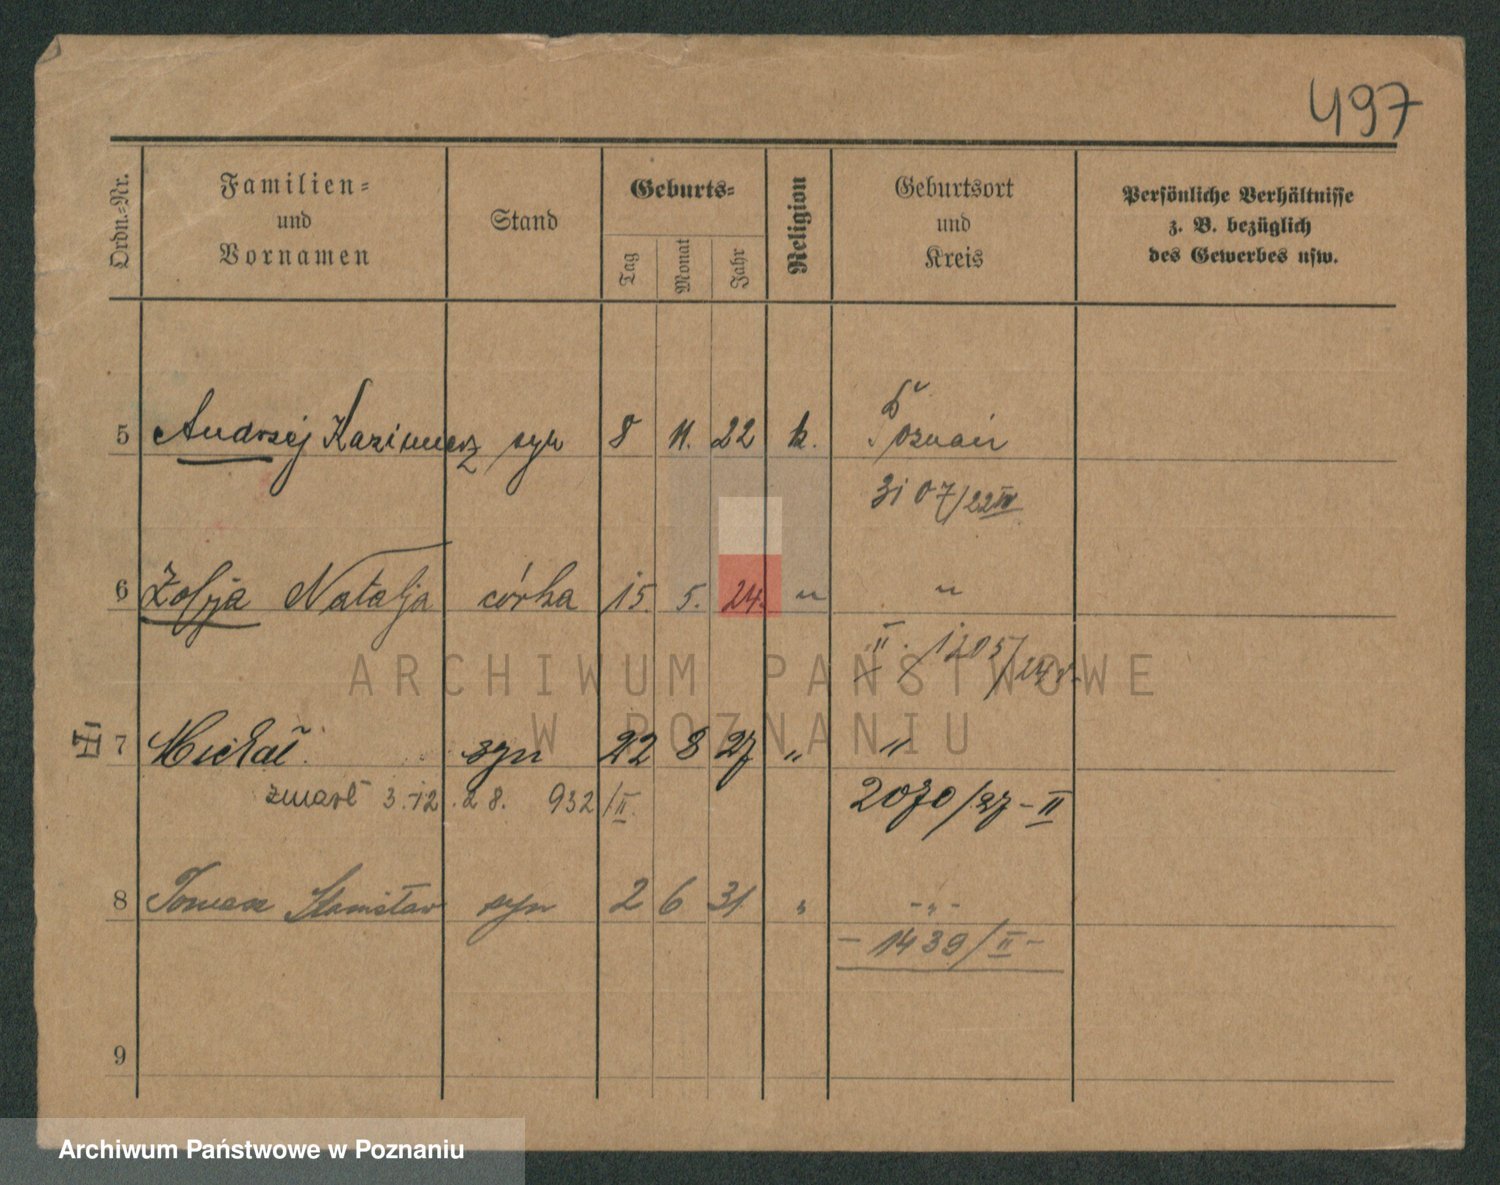 497
Ordn.-Nr.
Familien-
und
Vornamen
Stand
Geburts-
Tag
Monat
Jahr
Religion
Geburtsort
und
Kreis
Persönliche Verhältnisse
z. B. bezüglich
des Gewerbes usw.
5 Andrzej Kazimierz syn 8 11. 22 k. Poznań
3107/22 IV
6 Zofja Natalja córka 15. 5. 24. " "
II. 1205/24 r.
7 Michał. syn 22 8 27 " "
zmarł 3.12.28. 932/II.
2070/27-II
8 Tomasz Stanisław syn 2 6 31 " -"-
- 1439/II -
9
ARCHIWUM PAŃSTWOWE
W POZNANIU
Archiwum Państwowe w Poznaniu